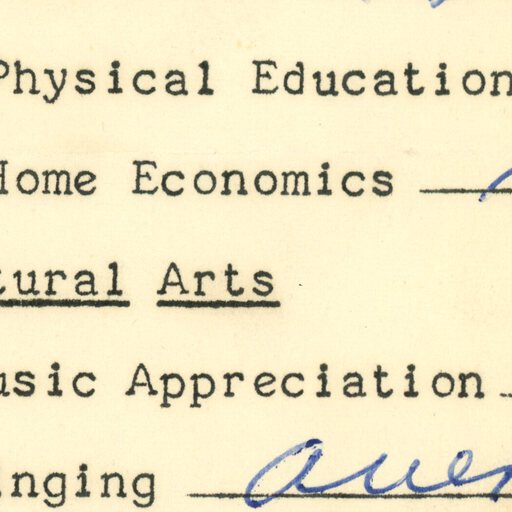 Physical Education
Home Economics
tural Arts
usic Appreciation
inging